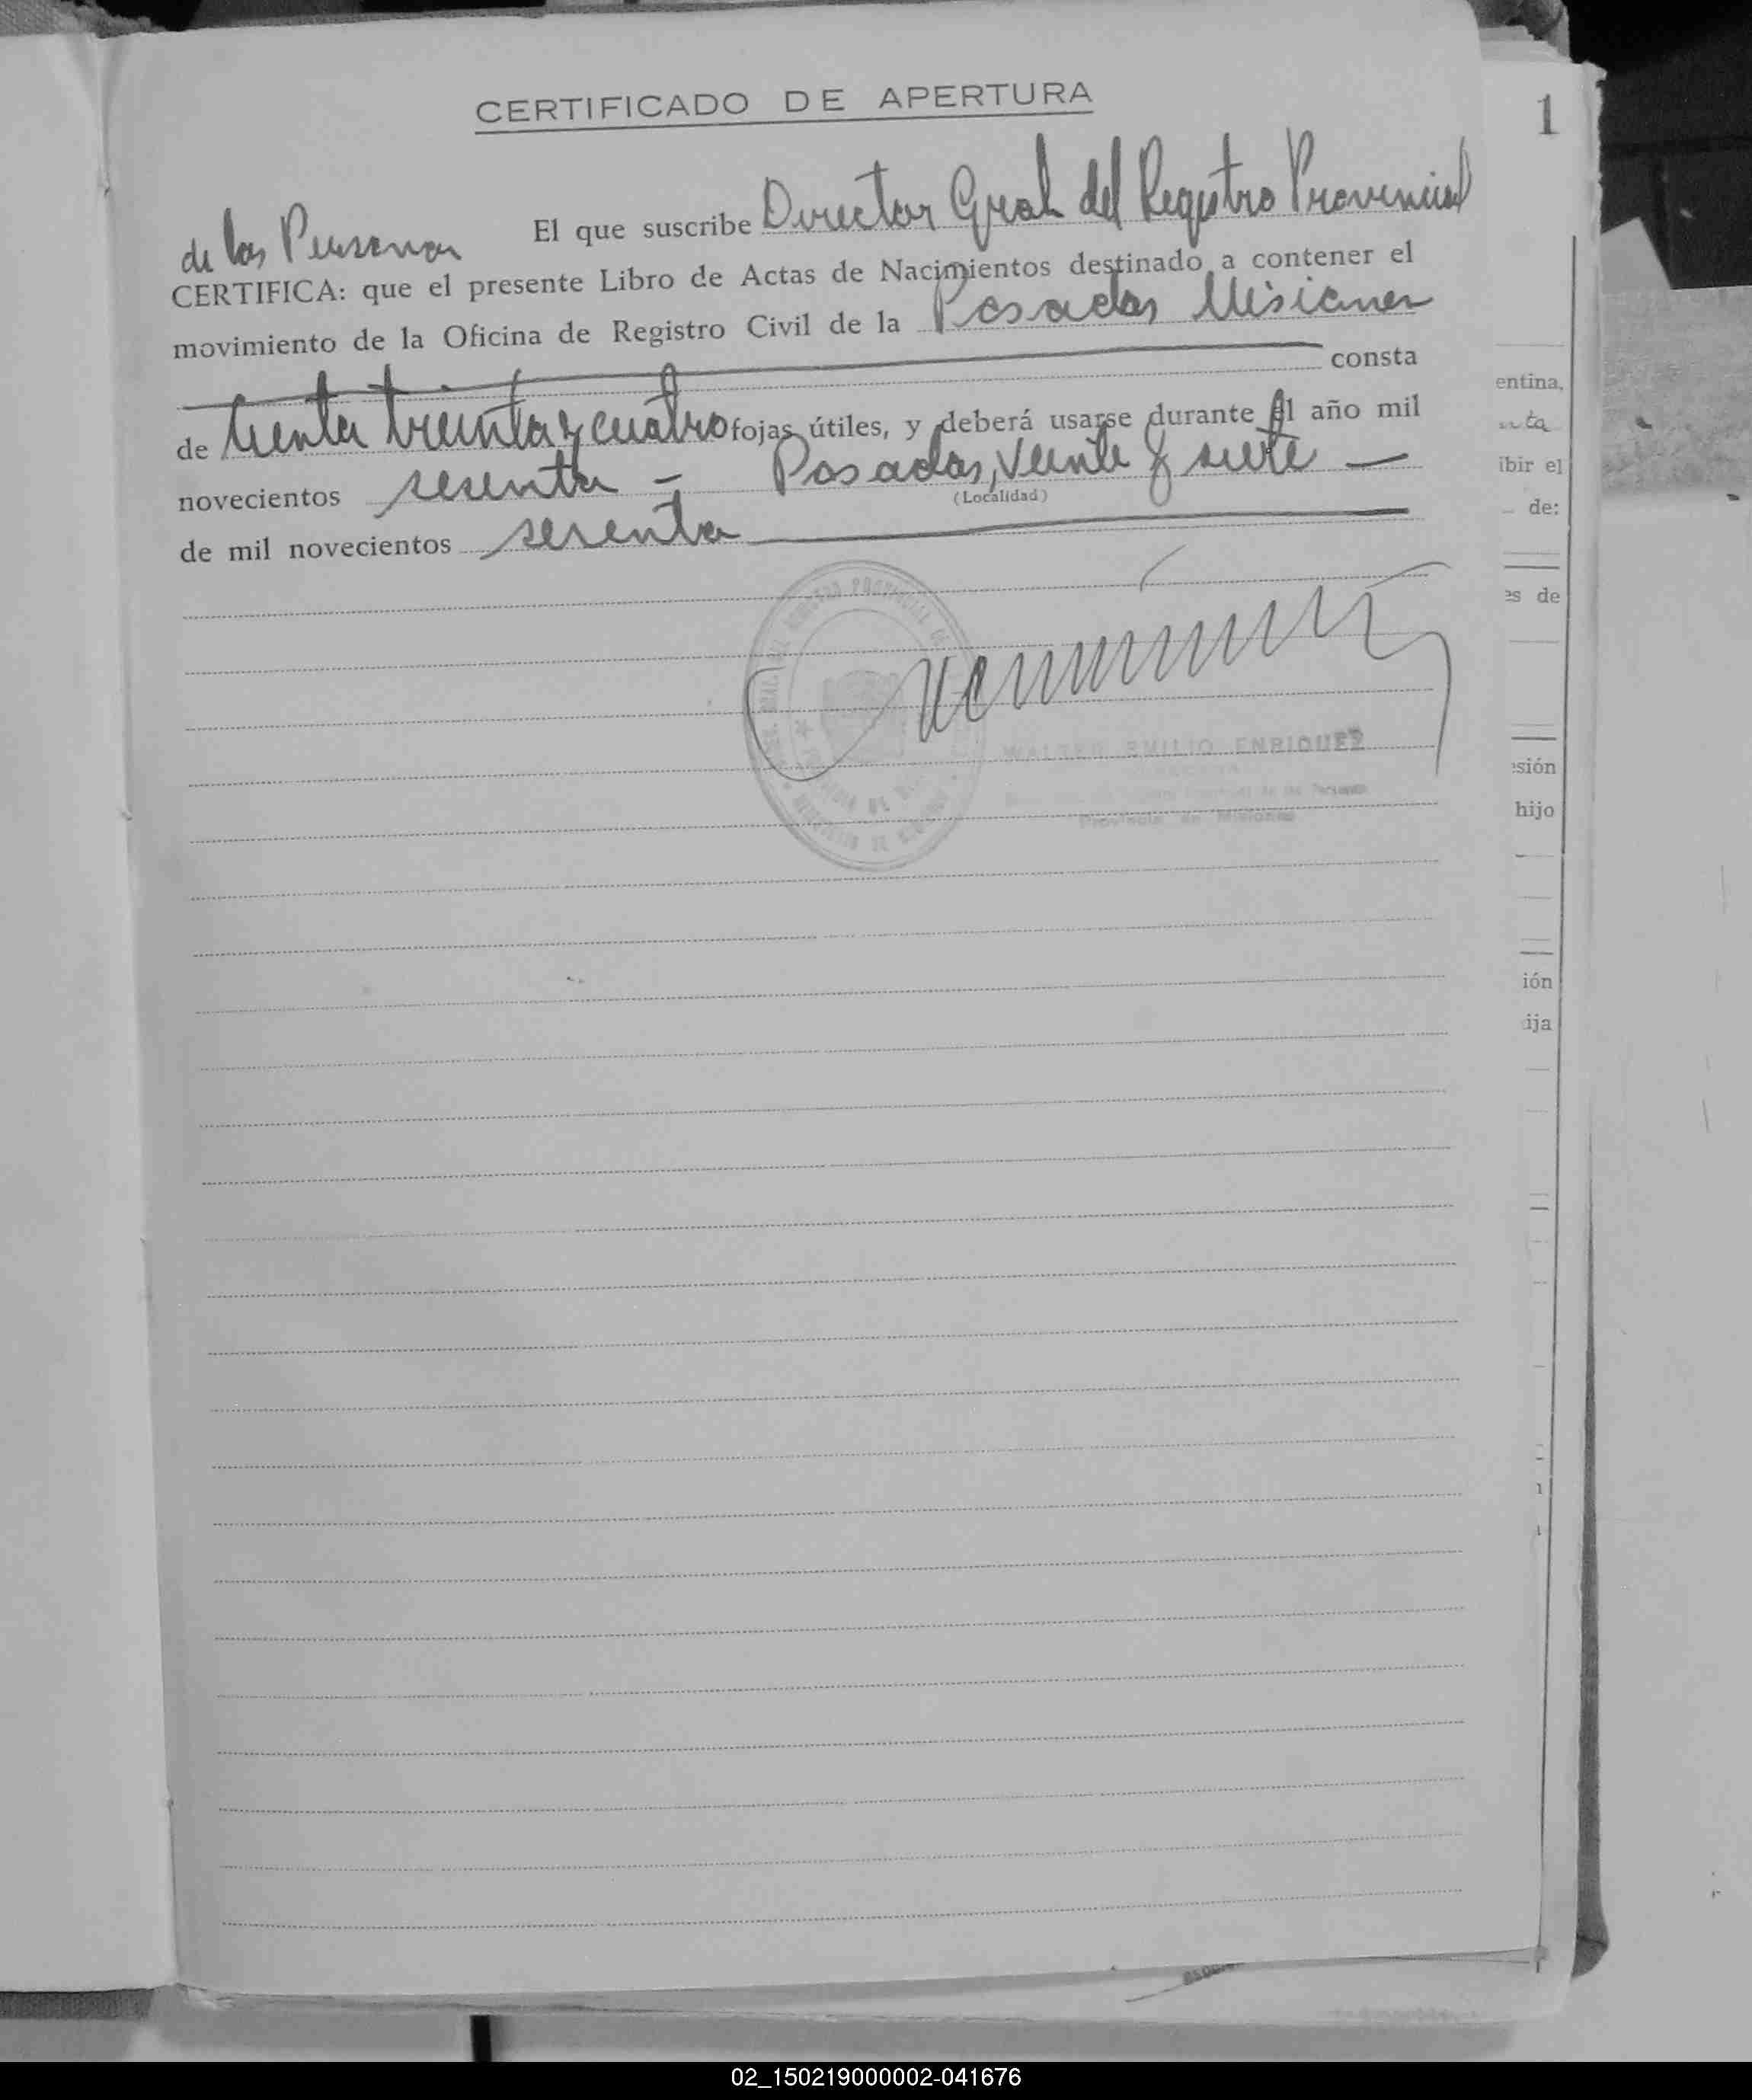 CERTIFICADO DE APERTURA
1
El que suscribe Director Gral del Registro Provincial
de las Personas
CERTIFICA: que el presente Libro de Actas de Nacimientos destinado a contener el
movimiento de la Oficina de Registro Civil de la Posadas Misiones
consta
de Cienta treinta y cuatro fojas útiles, y deberá usarse durante el año mil
novecientos sesenta - Posadas, veinte y siete —
(Localidad)
de mil novecientos sesenta
WALTER EMILIO ENRIQUEZ
Provincia de Misiones
entina,
ibir el
de:
es de
sión
hijo
ión
ija
02_150219000002-041676